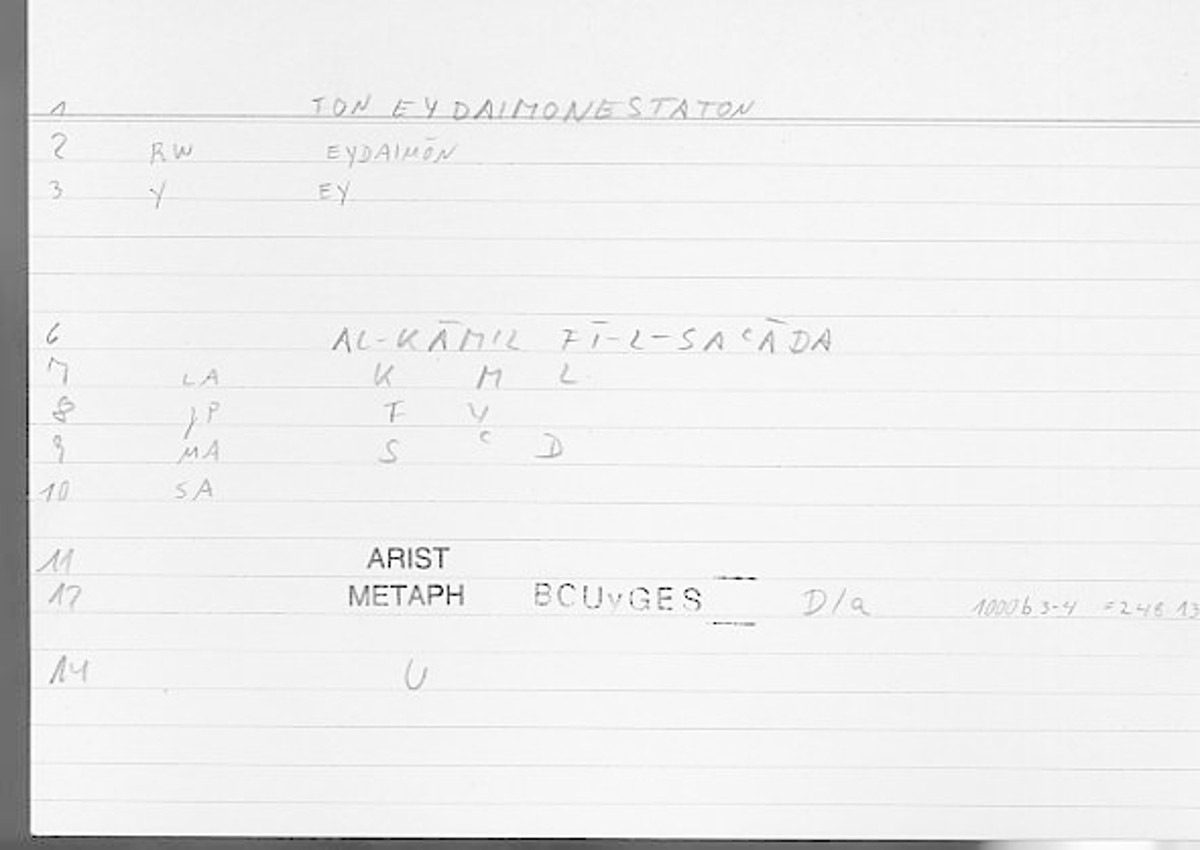 1 TON EYDAIMONESTATON
2 RW EYDAIMŌN
3 Y EY
6 AL-KĀMIL FĪ-L-SAʿĀDA
7 LA K M L
8 JP F Y
9 MA S ʿ D
10 SA
11 ARIST
12 METAPH BOUYGES D/a 1000b 3-4 = 248 13
14 U